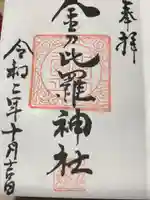 奉拝
金刀比羅神社
令和二年十月十三日